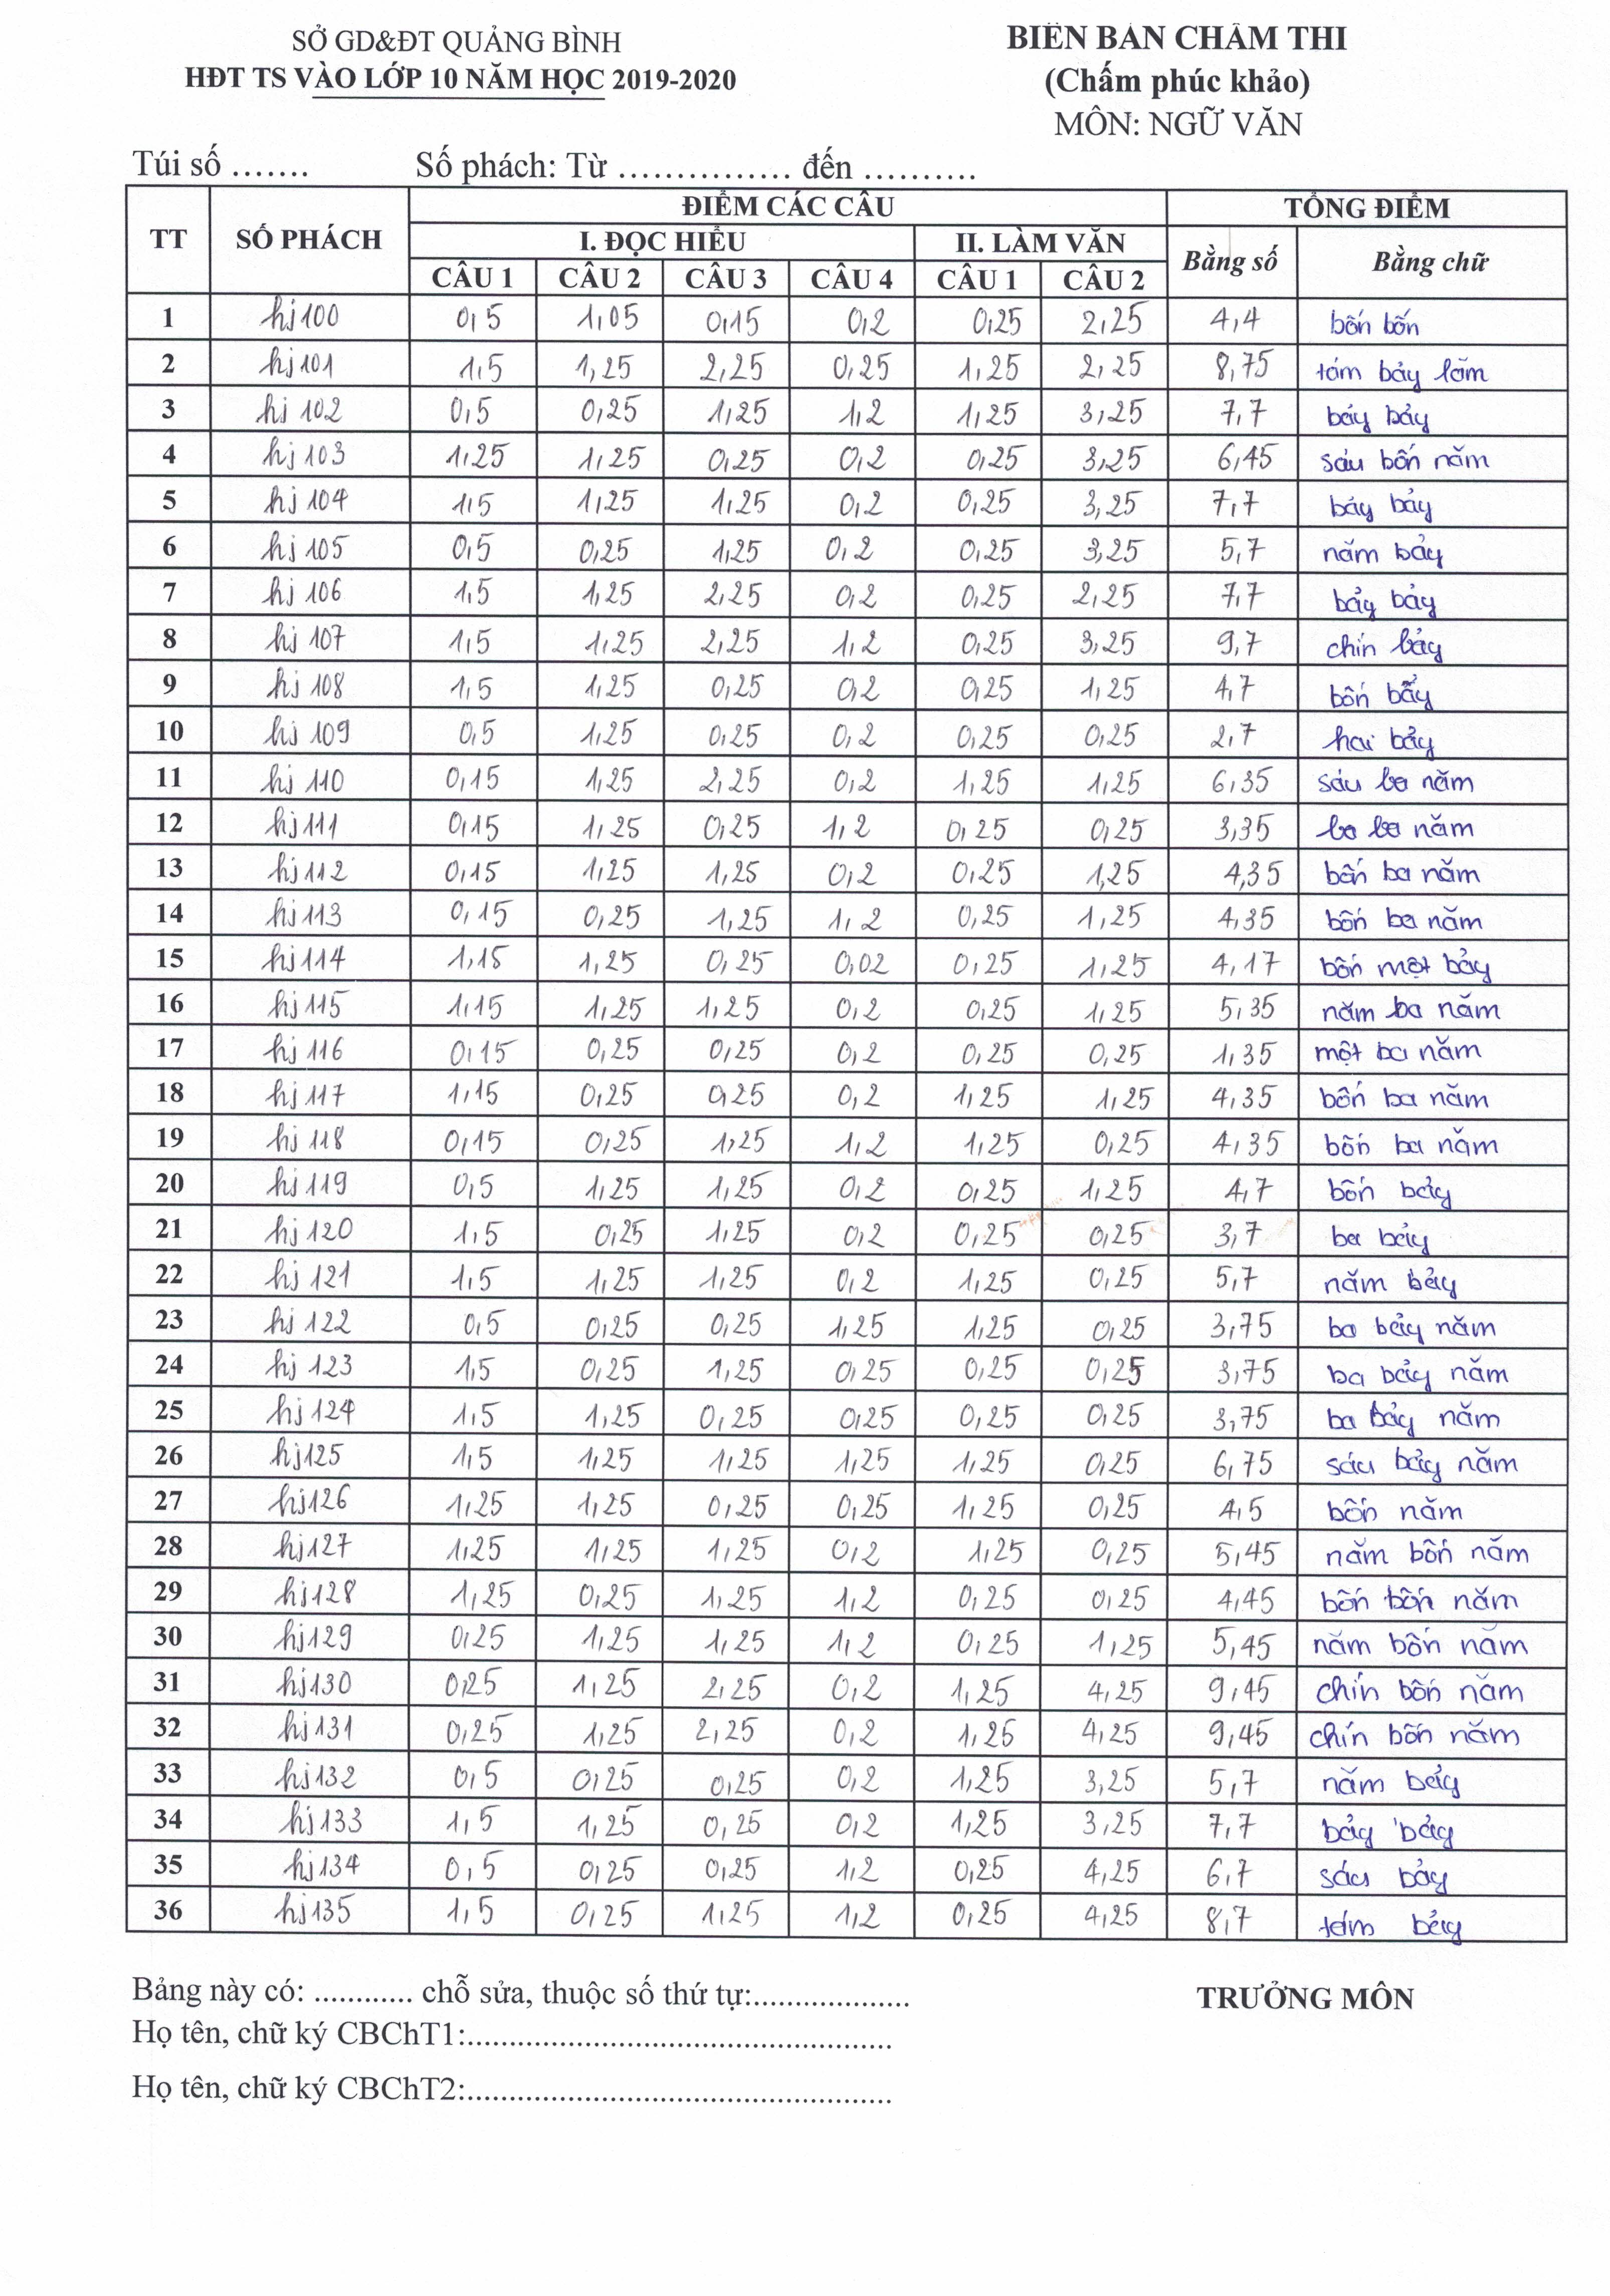 SỞ GD&ĐT QUẢNG BÌNH
HĐT TS VÀO LỚP 10 NĂM HỌC 2019-2020
BIÊN BẢN CHẤM THI
(Chấm phúc khảo)
MÔN: NGỮ VĂN
Túi số ....... Số phách: Từ ............... đến ..........
TT SỐ PHÁCH ĐIỂM CÁC CÂU TỔNG ĐIỂM
I. ĐỌC HIỂU II. LÀM VĂN Bằng số Bằng chữ
CÂU 1 CÂU 2 CÂU 3 CÂU 4 CÂU 1 CÂU 2
1 hj100 0,5 1,05 0,15 0,2 0,25 2,25 4,4 bốn bốn
2 hj101 1,5 1,25 2,25 0,25 1,25 2,25 8,75 tám bảy lăm
3 hj102 0,5 0,25 1,25 1,2 1,25 3,25 7,7 bảy bảy
4 hj103 1,25 1,25 0,25 0,2 0,25 3,25 6,45 sáu bốn năm
5 hj104 1,5 1,25 1,25 0,2 0,25 3,25 7,7 bảy bảy
6 hj105 0,5 0,25 1,25 0,2 0,25 3,25 5,7 năm bảy
7 hj106 1,5 1,25 2,25 0,2 0,25 2,25 7,7 bảy bảy
8 hj107 1,5 1,25 2,25 1,2 0,25 3,25 9,7 chín bảy
9 hj108 1,5 1,25 0,25 0,2 0,25 1,25 4,7 bốn bẩy
10 hj109 0,5 1,25 0,25 0,2 0,25 0,25 2,7 hai bảy
11 hj110 0,15 1,25 2,25 0,2 1,25 1,25 6,35 sáu ba năm
12 hj111 0,15 1,25 0,25 1,2 0,25 0,25 3,35 ba ba năm
13 hj112 0,15 1,25 1,25 0,2 0,25 1,25 4,35 bốn ba năm
14 hj113 0,15 0,25 1,25 1,2 0,25 1,25 4,35 bốn ba năm
15 hj114 1,15 1,25 0,25 0,02 0,25 1,25 4,17 bốn một bảy
16 hj115 1,15 1,25 1,25 0,2 0,25 1,25 5,35 năm ba năm
17 hj116 0,15 0,25 0,25 0,2 0,25 0,25 1,35 một ba năm
18 hj117 1,15 0,25 0,25 0,2 1,25 1,25 4,35 bốn ba năm
19 hj118 0,15 0,25 1,25 1,2 1,25 0,25 4,35 bốn ba năm
20 hj119 0,5 1,25 1,25 0,2 0,25 1,25 4,7 bốn bảy
21 hj120 1,5 0,25 1,25 0,2 0,25 0,25 3,7 ba bảy
22 hj121 1,5 1,25 1,25 0,2 1,25 0,25 5,7 năm bảy
23 hj122 0,5 0,25 0,25 1,25 1,25 0,25 3,75 ba bảy năm
24 hj123 1,5 0,25 1,25 0,25 0,25 0,25 3,75 ba bảy năm
25 hj124 1,5 1,25 0,25 0,25 0,25 0,25 3,75 ba bảy năm
26 hj125 1,5 1,25 1,25 1,25 1,25 0,25 6,75 sáu bảy năm
27 hj126 1,25 1,25 0,25 0,25 1,25 0,25 4,5 bốn năm
28 hj127 1,25 1,25 1,25 0,2 1,25 0,25 5,45 năm bốn năm
29 hj128 1,25 0,25 1,25 1,2 0,25 0,25 4,45 bốn bốn năm
30 hj129 0,25 1,25 1,25 1,2 0,25 1,25 5,45 năm bốn năm
31 hj130 0,25 1,25 2,25 0,2 1,25 4,25 9,45 chín bốn năm
32 hj131 0,25 1,25 2,25 0,2 1,25 4,25 9,45 chín bốn năm
33 hj132 0,5 0,25 0,25 0,2 1,25 3,25 5,7 năm bảy
34 hj133 1,5 1,25 0,25 0,2 1,25 3,25 7,7 bảy bảy
35 hj134 0,5 0,25 0,25 1,2 0,25 4,25 6,7 sáu bảy
36 hj135 1,5 0,25 1,25 1,2 0,25 4,25 8,7 tám bảy
Bảng này có: ............ chỗ sửa, thuộc số thứ tự:...................
TRƯỞNG MÔN
Họ tên, chữ ký CBChT1:....................................................
Họ tên, chữ ký CBChT2:....................................................